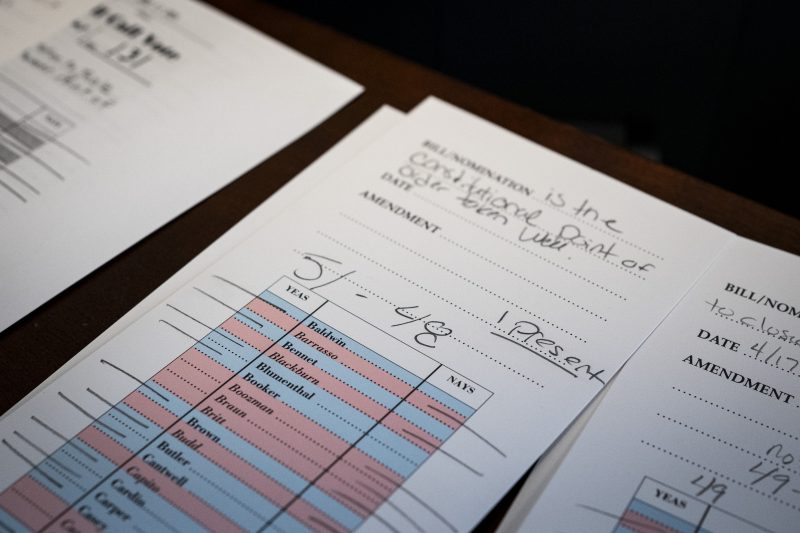 ll Call Vote
131
NAYS
BILL/NOMINATION is the
Constitutional Point of
Order taken well.
DATE
AMENDMENT
51 - 48
1 Present
YEAS
NAYS
Baldwin
Barrasso
Bennet
Blackburn
Blumenthal
Booker
Boozman
Braun
Britt
Brown
Budd
Butler
Cantwell
Capito
Cardin
Carper
Casey
BILL/NOM
to closu
DATE 4/17
AMENDMENT
no
49-
49
YEAS